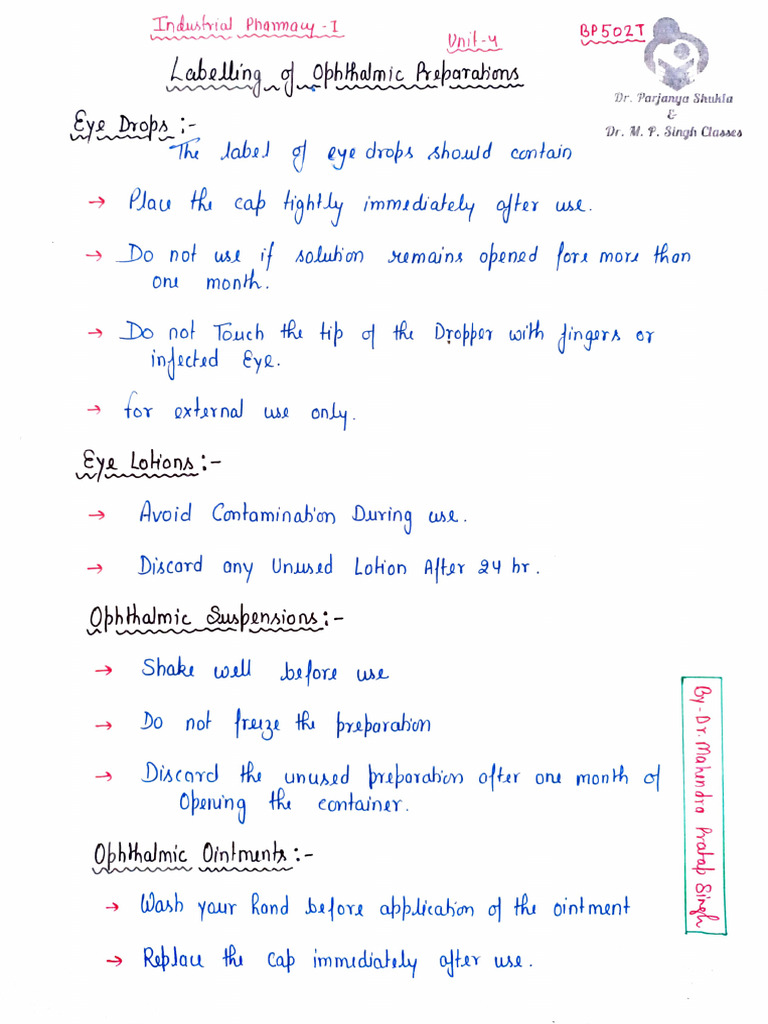 Industrial Pharmacy -I
Unit-4
BP502T
Labelling of Ophthalmic Preparations
Dr. Parjanya Shukla
&
Dr. M. P. Singh Classes
Eye Drops :-
The label of eye drops should contain
→ Place the cap tightly immediately after use.
→ Do not use if solution remains opened fore more than
one month.
→ Do not Touch the tip of the Dropper with fingers or
infected Eye.
→ for external use only.
Eye Lotions :-
→ Avoid Contamination During use.
→ Discard any Unused Lotion After 24 hr.
Ophthalmic Suspensions :-
→ Shake well before use
→ Do not freize the preparation
→ Discard the unused preparation after one month of
Opening the container.
Ophthalmic Ointments :-
→ Wash your hand before application of the ointment
→ Replace the cap immediately after use.
By- Dr. Mahendra Pratap Singh